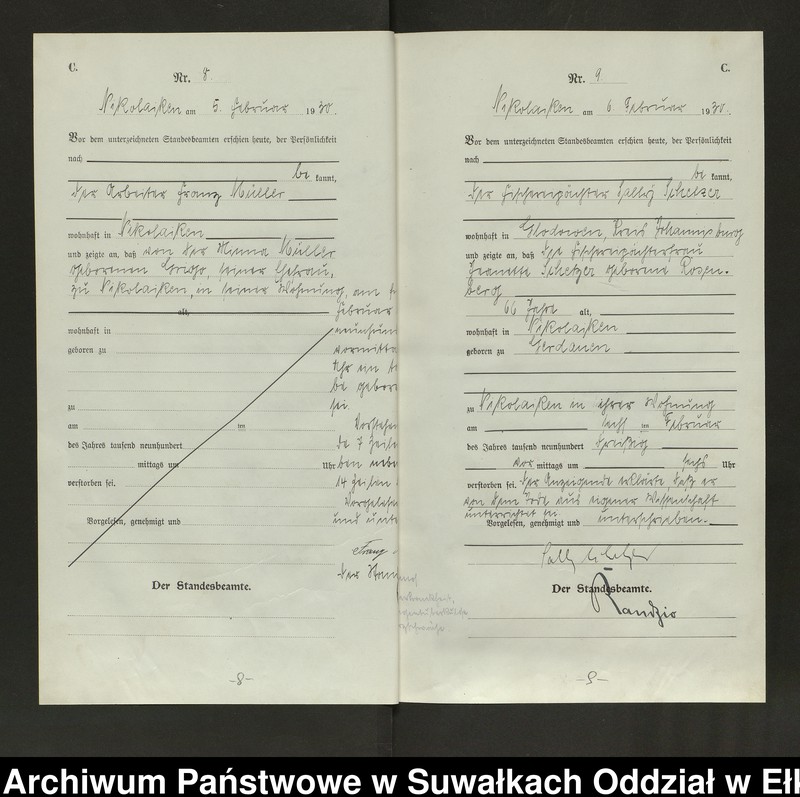 C.
Nr. 8.
Nikolaiken am 5. Februar 1930.
Vor dem unterzeichneten Standesbeamten erschien heute, der Persönlichkeit
nach
be kannt,
der Arbeiter Franz Müller
wohnhaft in Nikolaiken
und zeigte an, daß von der Minna Müller
geborenen, seiner Ehefrau,
zu Nikolaiken, in seiner Wohnung, am
alt,
Februar
wohnhaft in
neunhun
geboren zu
vormitta
Uhr ein
be gebor
zu
sei.
am im
Vorstehen
des Jahres tausend neunhundert
de 7 Zeile
mittags um Uhr
ben nebe
verstorben sei.
14 Zeilen
Vorgelese
Vorgelesen, genehmigt und
und unte
Franz
der Stan
Der Standesbeamte.
-8-
Nr. 9.
C.
Nikolaiken am 6. Februar 1930.
Vor dem unterzeichneten Standesbeamten erschien heute, der Persönlichkeit
nach
be kannt,
der Fischereipächter Sally Schetzer
wohnhaft in Glodowen, Kreis Johannisburg
und zeigte an, daß die Fischereipächterfrau
Jeanette Schetzer geborene Rosen-
berg
66 Jahre alt,
wohnhaft in Nikolaiken
geboren zu Gerdauen
zu Nikolaiken in ihrer Wohnung
am sechs im Februar
des Jahres tausend neunhundert dreißig
vor mittags um sechs Uhr
verstorben sei. Der Anzeigende erklärte, daß er
von dem Tode aus eigener Wissenschaft
unterrichtet sei.
Vorgelesen, genehmigt und unterschrieben.
Sally Schetzer
Der Standesbeamte.
Randzio
-9-
Archiwum Państwowe w Suwałkach Oddział w Ełk